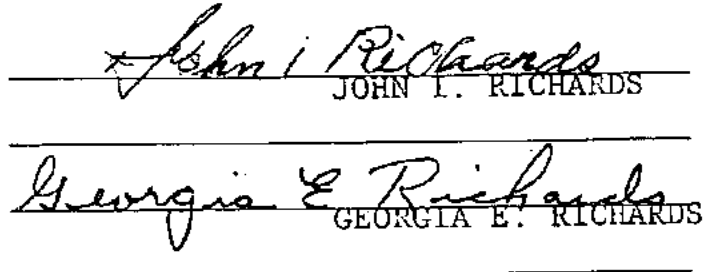 x John I Richards
JOHN I. RICHARDS
Georgia E Richards
GEORGIA E. RICHARDS